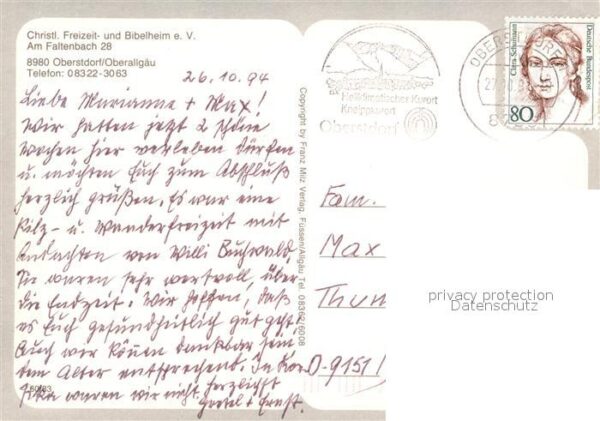 Christl. Freizeit- und Bibelheim e. V.
Am Faltenbach 28
8980 Oberstdorf/Oberallgäu
Telefon: 08322-3063
26.10.94
Liebe Marianne + Max!
Wir hatten jetzt 2 schöne
Wochen hier verleben dürfen
u. möchten Euch zum Abschluß
herzlich grüßen. Es war eine
Pilz- u. Wanderfreizeit mit
Andachten von Willi Buchwald.
Sie waren sehr wertvoll, über
die Endzeit. Wir hoffen, daß
es Euch gesundheitlich gut geht.
Auch wir können dankbar sein
dem Alter entsprechend. In Kor
sika waren wir nicht. herzlichst
Gretel + Ernst.
Copyright by Franz Milz Verlag, Füssen/Allgäu Tel. 08362/6008
Heilklimatischer Kurort
Kneippkurort
Oberstdorf
OBERSTDORF
Clara Schumann
Deutsche Bundespost
80
Fam.
Max
Thum
D-9151/
privacy protection
Datenschutz